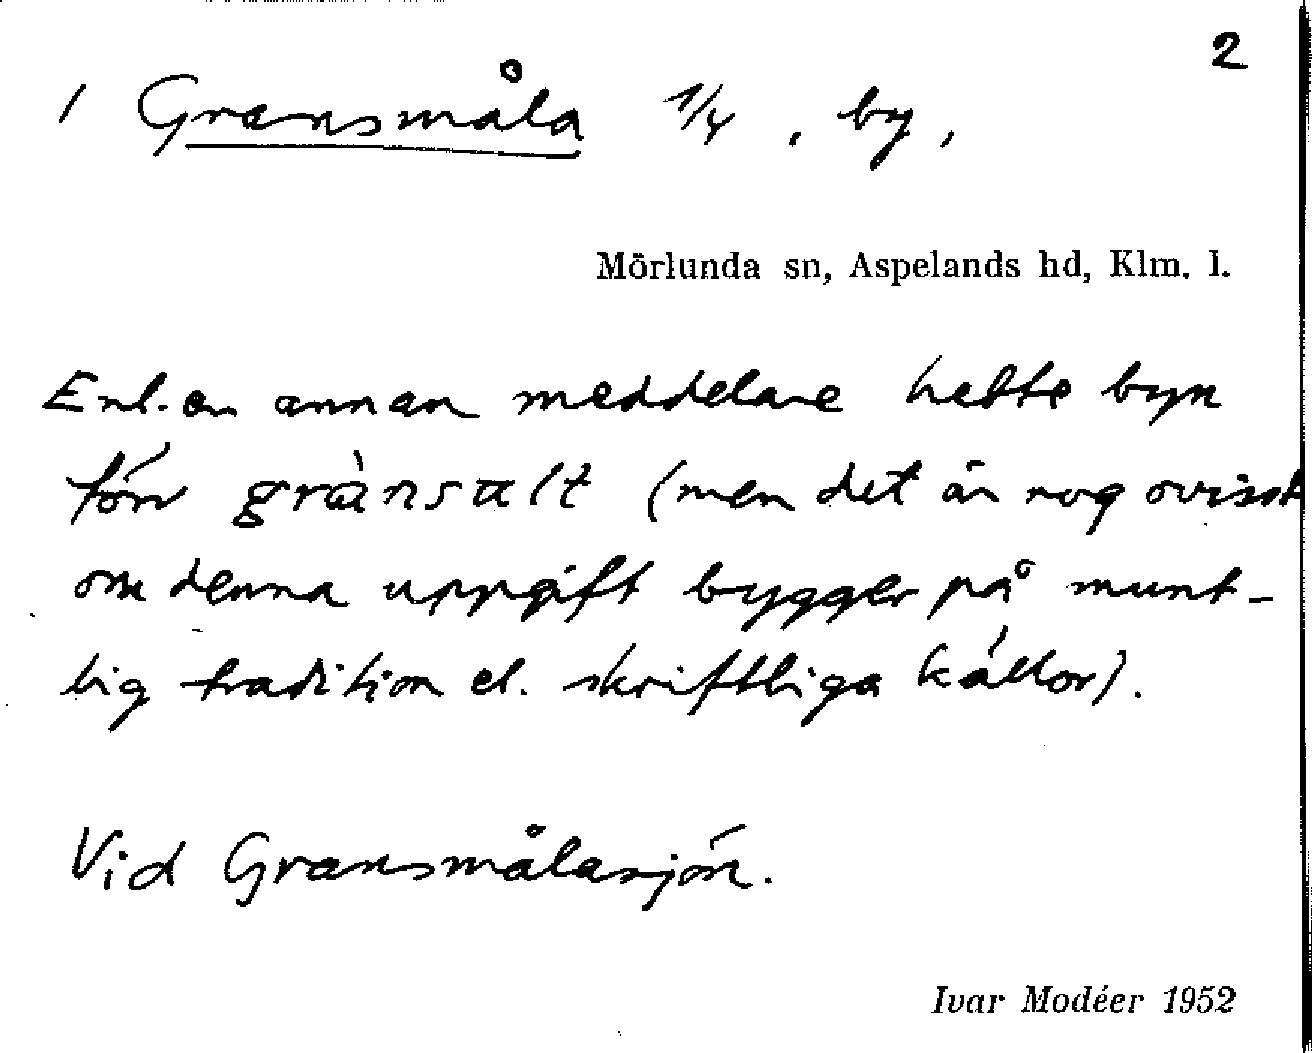 2
1 Gransmåla 1/4, by,
Mörlunda sn, Aspelands hd, Klm. l.
Enl. en annan meddelare hette byn
förr grànsult (men det är nog ovisst
om denna uppgift bygger på munt-
lig tradition el. skriftliga källor).
Vid Gransmålasjön.
Ivar Modéer 1952